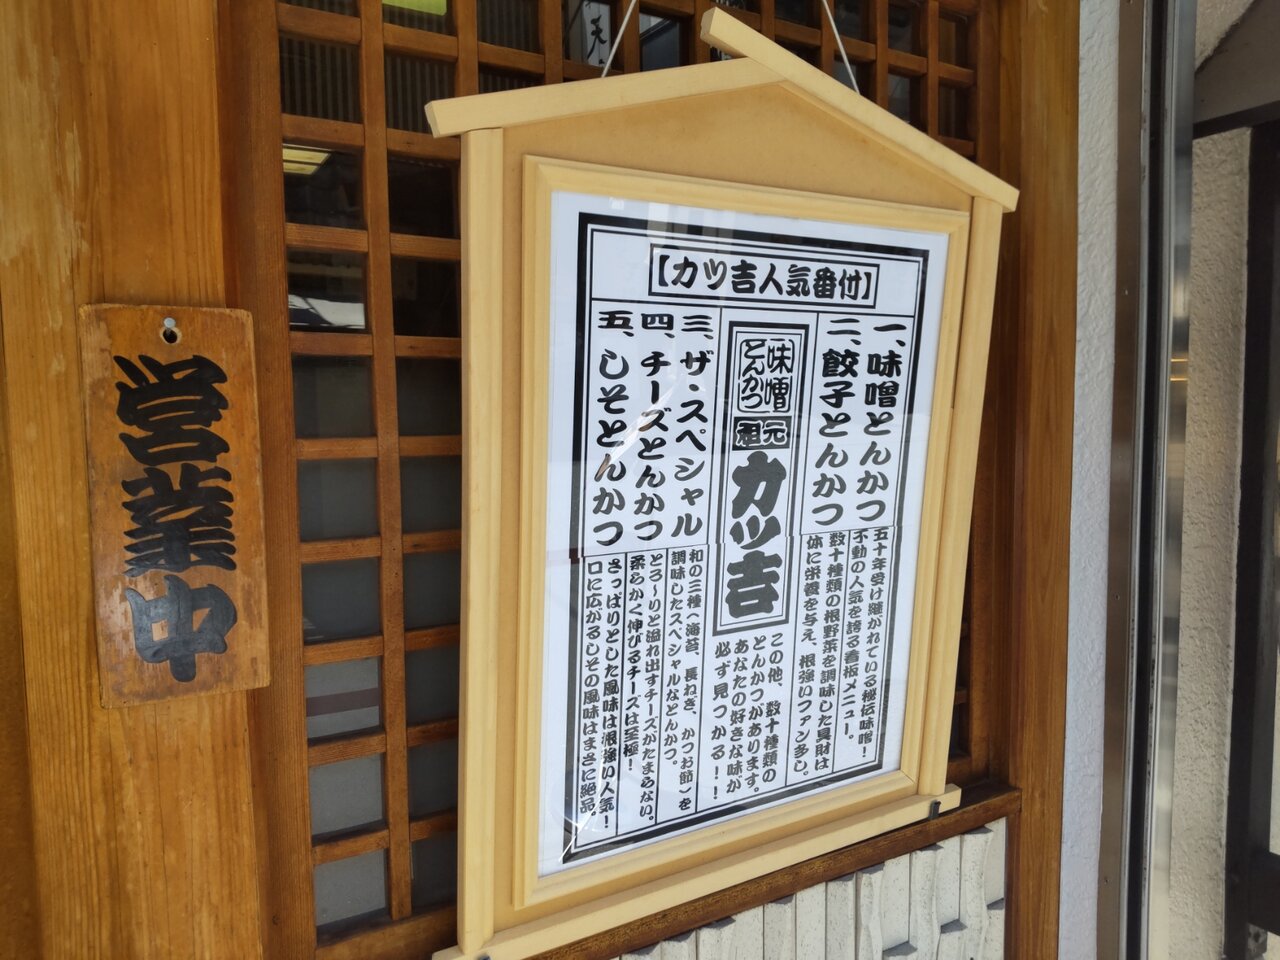 営業中
天
【カツ吉人気番付】
一、味噌とんかつ
五十年受け継がれている秘伝味噌！
不動の人気を誇る看板メニュー。
二、餃子とんかつ
数十種類の根野菜を調味した具財は
体に栄養を与え、根強いファン多し。
味噌
とんかつ
元祖
カツ吉
この他、数十種類の
とんかつがあります。
あなたの好きな味が
必ず見つかる！！
三、ザ・スペシャル
和の三種（海苔、長ねぎ、かつお節）を
調味したスペシャルなとんかつ。
四、チーズとんかつ
とろ〜りと溢れ出すチーズがたまらない。
柔らかく伸びるチーズは至極！
五、しそとんかつ
さっぱりとした風味は根強い人気！
口に広がるしその風味はまさに絶品。